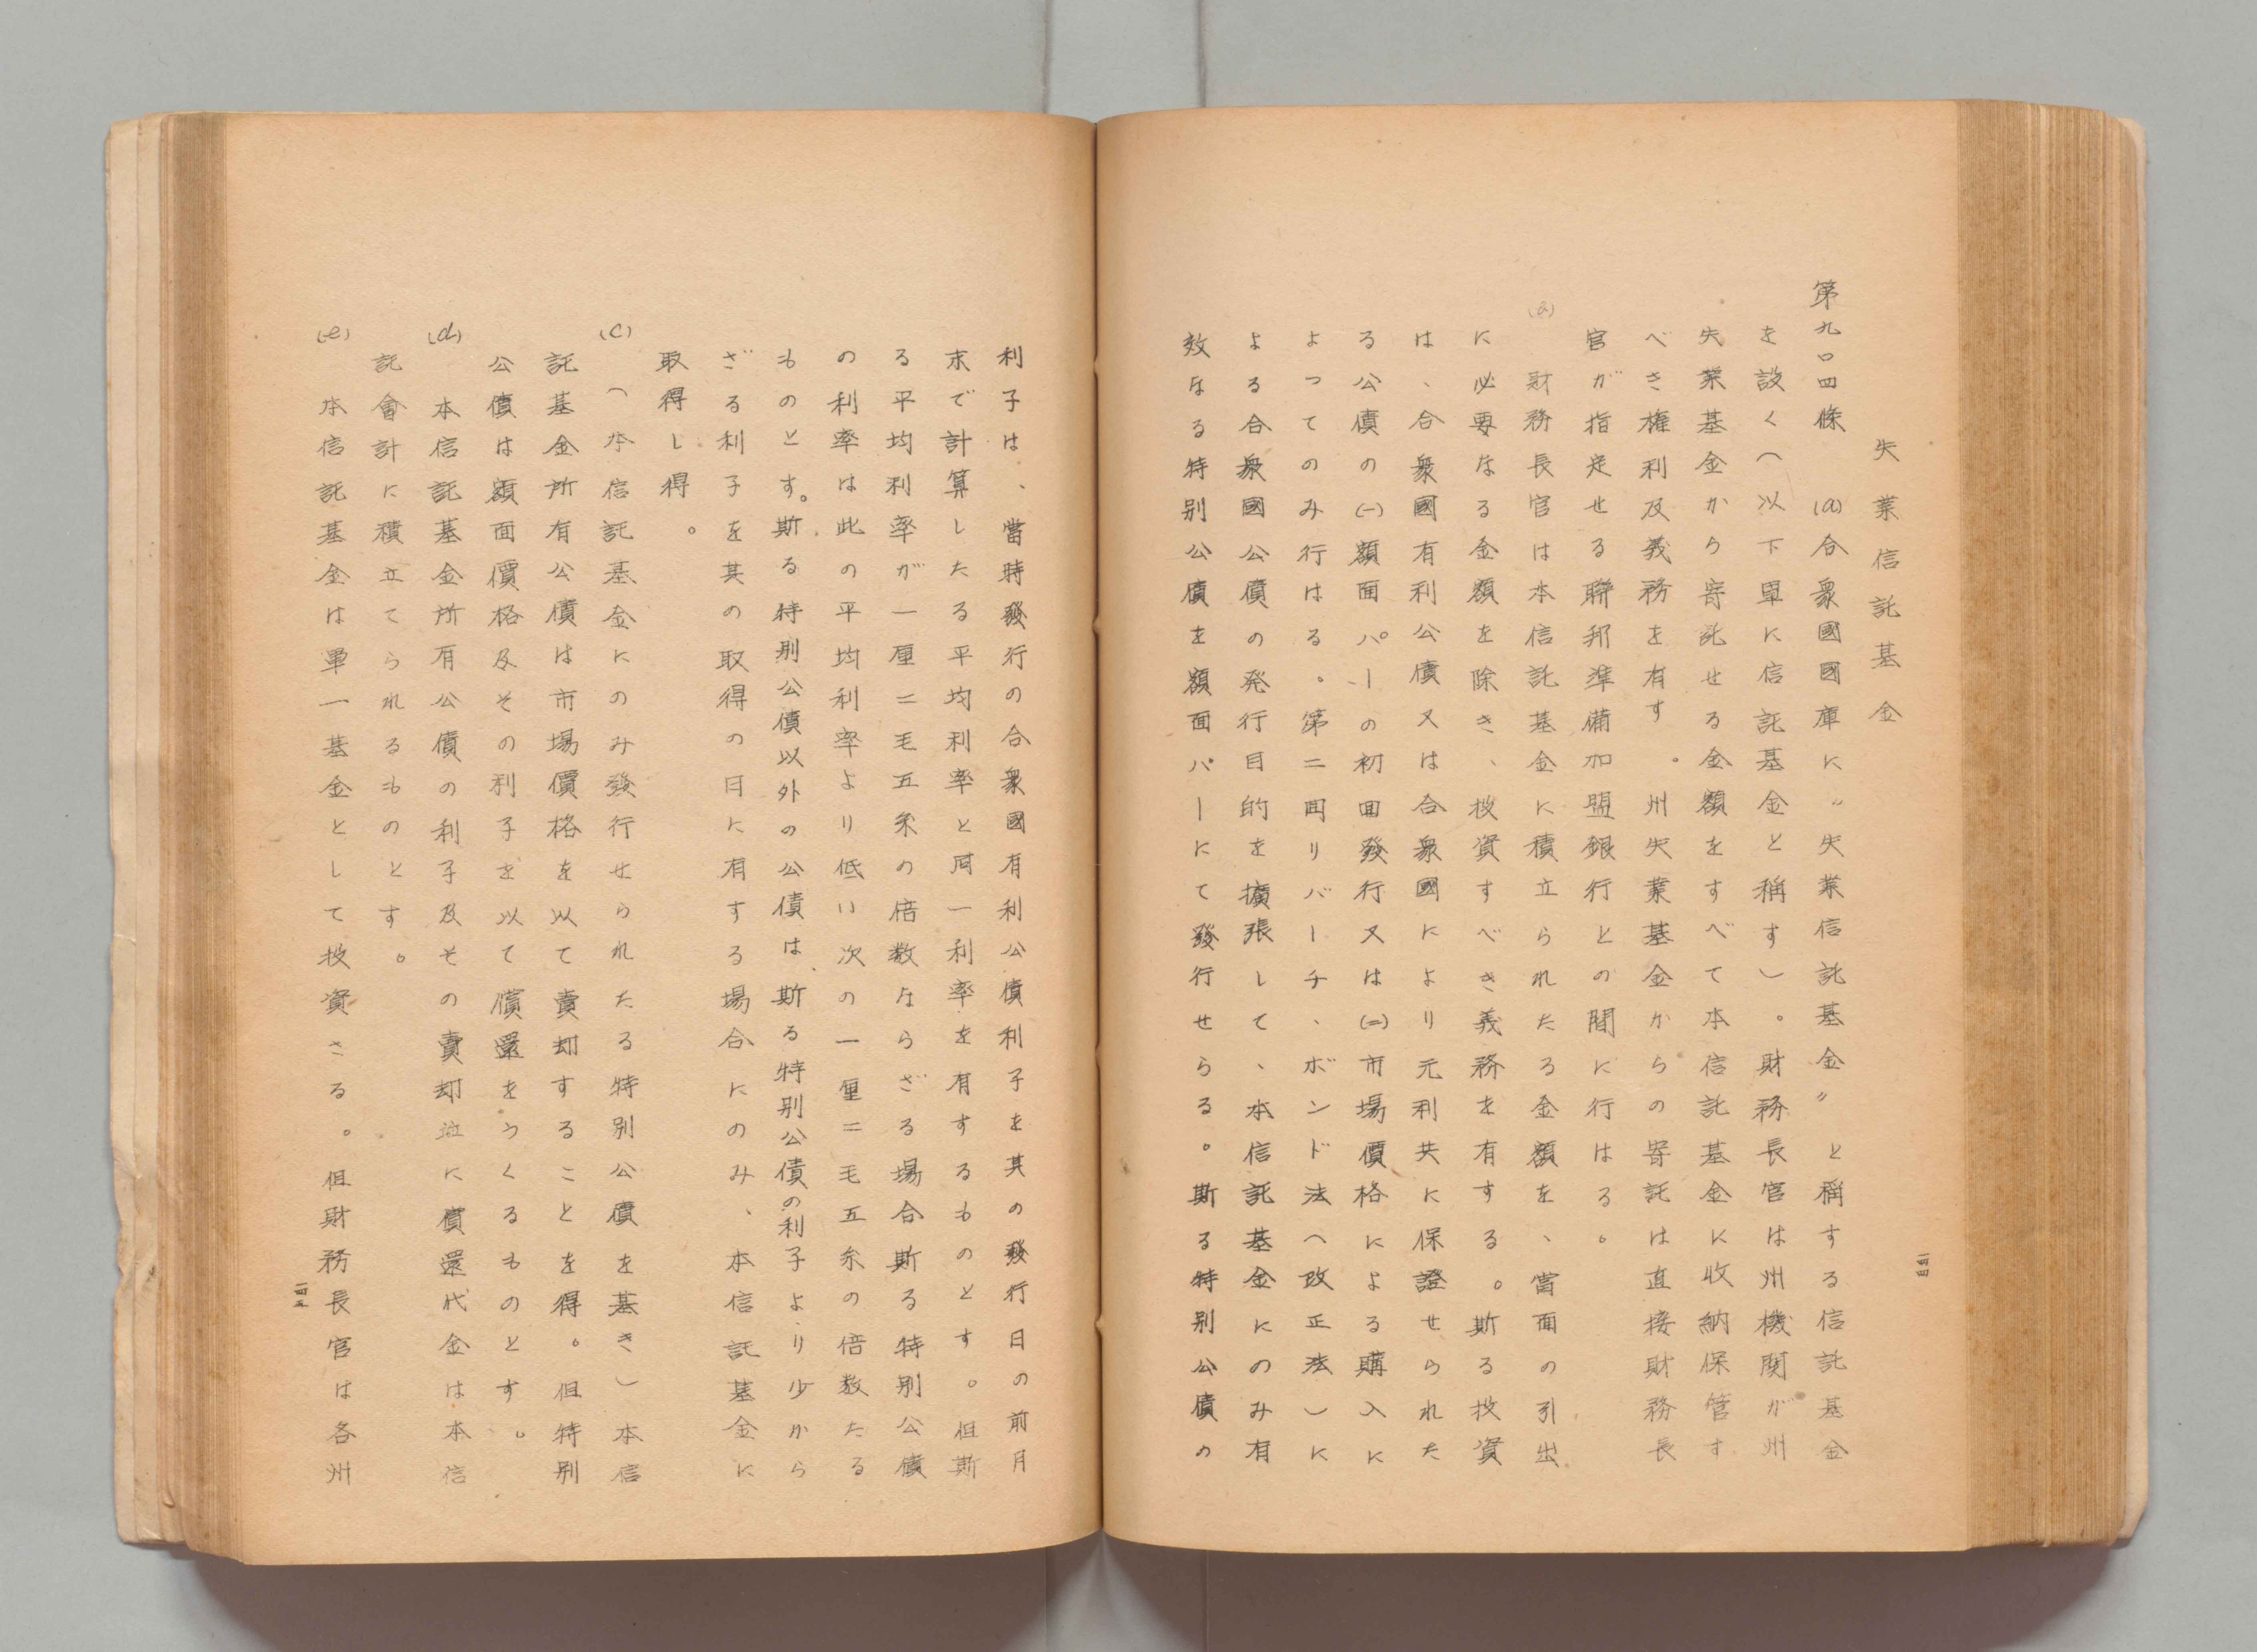 失業信託基金
第九〇四條　(a)合衆國國庫に〃失業信託基金〃と稱する信託基金
を設く（以下単に信託基金と稱す）。財務長官は州機関が州
失業基金から寄託せる金額をすべて本信託基金に收納保管す
べき権利及義務を有す。州失業基金からの寄託は直接財務長
官が指定せる聯邦準備加盟銀行との間に行はる。
財務長官は本信託基金に積立られたる金額を、當面の引出
に必要なる金額を除き、投資すべき義務を有する。斯る投資
は、合衆國有利公債又は合衆國により元利共に保證せられた
る公債の(一)額面パーの初回發行又は(二)市場價格による購入に
よってのみ行はる。第二囬リバーチ、ボンド法（改正法）に
よる合衆國公債の発行目的を擴張して、本信託基金にのみ有
效なる特別公債を額面パーにて發行せらる。斯る特別公債の
一四四
利子は、當時發行の合衆國有利公債利子を其の發行日の前月
末で計算したる平均利率と同一利率を有するものとす。但斯
る平均利率が一厘二毛五糸の倍数ならざる場合斯る特別公債
の利率は此の平均利率より低い次の一厘二毛五糸の倍数たる
ものとす。斯る特別公債以外の公債は、斯る特別公債の利子より少から
ざる利子を其の取得の日に有する場合にのみ、本信託基金に
取得し得。
(c)（本信託基金にのみ發行せられたる特別公債を基き）本信
託基金所有公債は市場價格を以て賣却することを得。但特別
公債は額面價格及その利子を以て償還をうくるものとす。
(d)本信託基金所有公債の利子及その賣却並に償還代金は本信
託會計に積立てられるものとす。
(e)本信託基金は単一基金として投資さる。但財務長官は各州
一四五